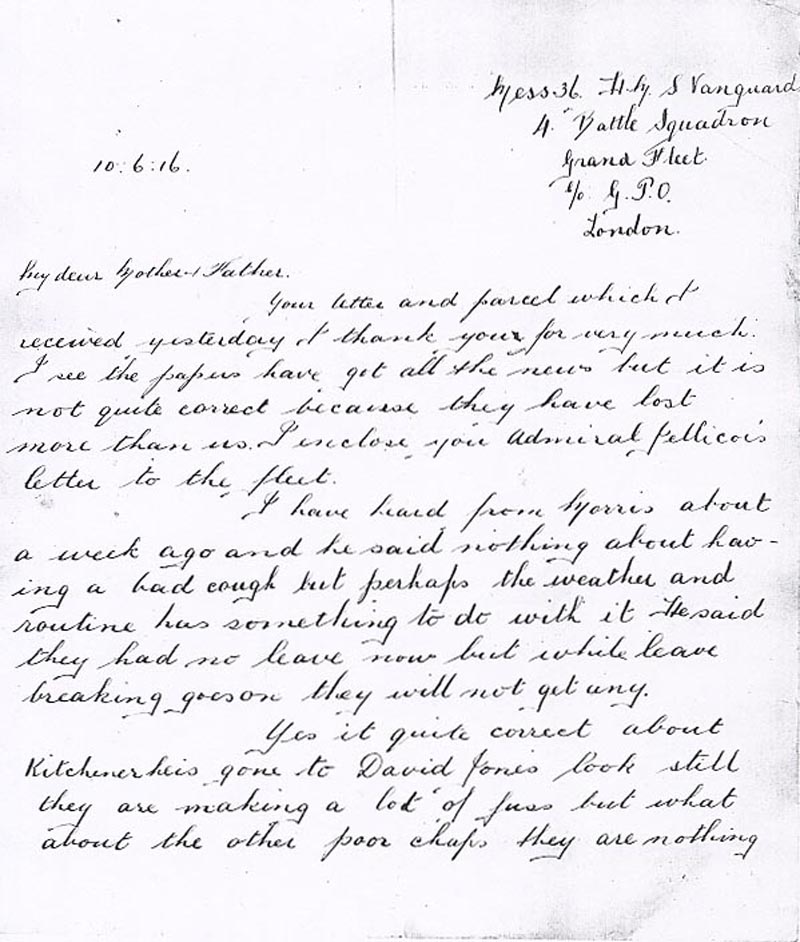 Mess 36. H.M.S Vanguard
4. Battle Squadron
Grand Fleet.
c/o G.P.O.
London.
10:6:16.
My dear Mother & Father.
Your letter and parcel which I
received yesterday I thank your for very much.
I see the papers have got all the news but it is
not quite correct because they have lost
more than us. I enclose you Admiral Jellicoi's
letter to the fleet.
I have heard from Morris about
a week ago and he said nothing about hav-
ing a bad cough but perhaps the weather and
routine has something to do with it He said
they had no leave now but while leave
breaking goes on they will not get any.
Yes it quite correct about
Kitchener heis gone to David Jones look still
they are making a lot of fuss but what
about the other poor chaps they are nothing